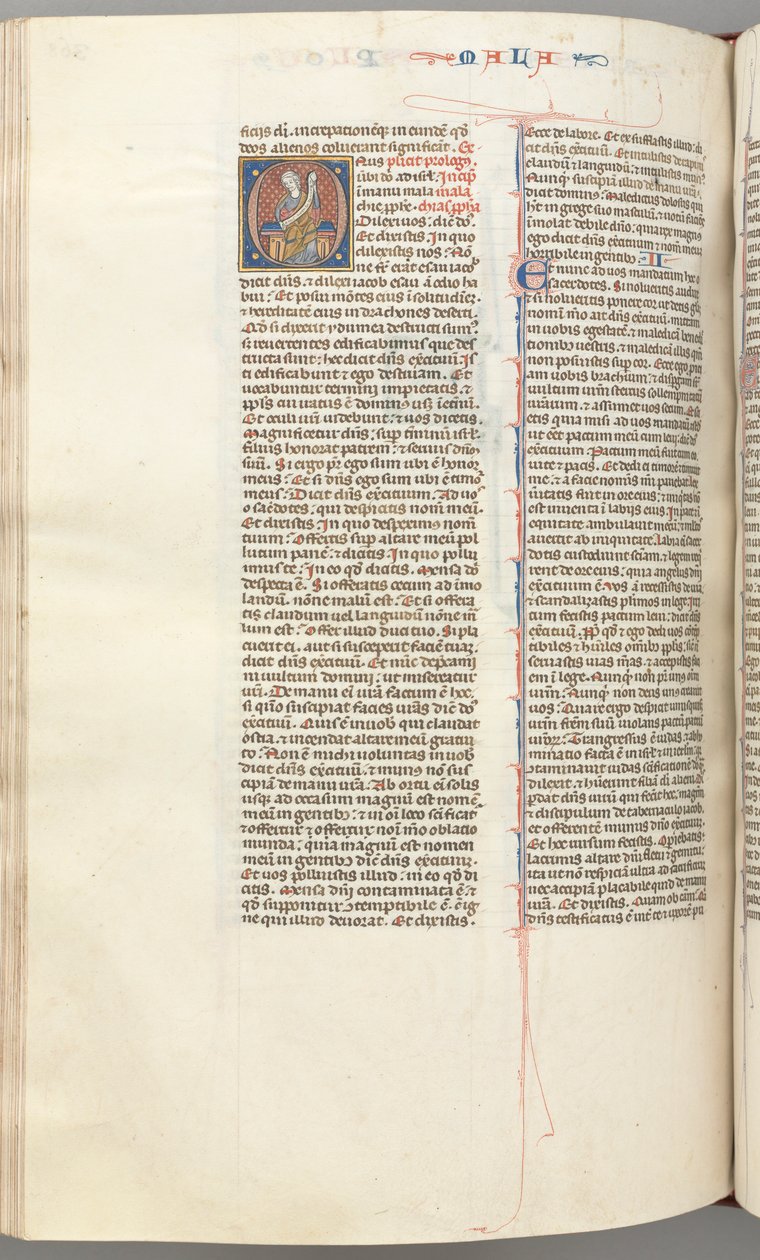 MALA
ficiis di. increpationeq; in eundē qd̄
deos alienos coluerant significat. Ex
Nus plicit prologus.
ubi dn̄ ad isrl. Incip̄
ī manu mala mala
chie pphe. chias ppha
Dilexi vos: dic̄ dn̄s.
Et dixistis. In quo
dilexistis nos? Nō
ne fr̄ erat esau iacob
dicit dn̄s: ⁊ dilexi iacob esau ā odio ha
bui? Et posui mōtes eius ī solitudinē:
⁊ hereditatē eius in dracones deserti.
Qd̄ si dixerit ydumea destructi sum?
s; revertentes edificabimus que des
tructa sunt: hec dicit dn̄s exercituū. Is
ti edificabunt ⁊ ego destruam. Et
vocabuntur termini impietatis. ⁊
ppl̄s cui iratus ē dominus usq; ī etnū.
Et oculi vr̄i videbunt: ⁊ vos dicetis.
Magnificetur dn̄s: sup tminū isrl.
filius honorat patrem: ⁊ servus dnm̄
suū. Si ergo pr̄ ego sum ubi ē honor
meus? Et si dn̄s ego sum ubi ē timor
meus? Dicit dn̄s exercituum. Ad vos
o sacdotes: qui despicitis nom̄ meū.
Et dixistis. In quo despeximus nom̄
tuum? Offertis sup altare meū pol
lutum panē: ⁊ dicitis. In quo pollu
imus te? In eo qd̄ dicitis. Mensa dn̄i
despecta ē. Si offeratis cecum ad imo
landū. nōne malū est? Et si offera
tis claudum vel languidū nōne ma
lum est? Offer illud duci tuo. Si pla
cuerit ei. aut si susceperit faciē tuā:
dicit dn̄s exercituū. Et nūc depcami
ni vultum domini: ut misereatur
vr̄i. De manu ei vr̄a factum ē hoc.
si quō suscipiat facies vr̄as dic̄ dn̄s
exercituū. Quis ē in vob qui claudat
ostia. ⁊ incendat altare meū gratui
to? Non ē michi voluntas in vob
dicit dn̄s exercituū: ⁊ munus nō sus
cipiā de manu vr̄a. Ab ortu ei solis
usq; ad occasum magnū est nomē
meū in gentibus: ⁊ in oī loco sacrificat
⁊ offertur ⁊ offertur nōi mō oblatio
munda: quia magnū est nomen
meū in gentibus dic̄ dn̄s exercituū.
Et vos polluistis illud: in eo qd̄ di
citis. Mensa dn̄i contaminata ē: ⁊
qd̄ supponitur ɔtemptibile ē. cū ig
ne qui illud devorat. Et dixistis.
Ecce de labore. Et exsufflastis illud: di
cit dn̄s exercituū. Et intulistis de rapinis
claudū ⁊ languidū: ⁊ intulistis mun9
Nunq; suscipiā illud de manu vr̄a:
dicit dominus? Maledictus dolosus qui
ht̄ in grege suo masculū: ⁊ votū faciēs
īmolat debile dn̄o: quia rex magnus
ego dicit dn̄s exercituū ⁊ nomen meū
horribile in gentibus. II
Et nunc ad vos mandatum hoc o
sacerdotes. Si nolueritis audire
⁊ si nolueritis ponere cor ut detis gl̄am
nomī mō ait dn̄s exercituū: mittam
in vobis egestatē: ⁊ maledicā benedic
tionibus vestris. ⁊ maledicā illis qm̄
non posuistis sup cor. Ecce ego proici
am vobis brachium: ⁊ dispgam sup
vultum vr̄m stercus sollempnitatū
vr̄arum. ⁊ assumet vos secum. Et sci
etis quia misi ad vos mandatū istud
ut eet pactum meū cum levi: dic̄ dn̄s
exercituum. Pactum meū fuit cum eo.
vite ⁊ pacis. Et dedi ei timorē ⁊ timuit
me: ⁊ a facie nomīs mī pavebat. lex
v̄itatis fuit in ore eius: ⁊ iniqtas nō
est inventa ī labiis eius. In pace ⁊ ī
equitate ambulavit mecū: ⁊ mltos
avertit ab iniquitate. Labia ei sacer
dotis custodiunt sciam: ⁊ legem requi
rent de ore eius: quia angelus dn̄i
exercituum ē. Vos ā recessistis de via.
⁊ scandalizastis plimos in lege: irri
tum fecistis pactum levi: dicit dn̄s
exercituū. Pp̄ qd̄ ⁊ ego dedi vos cōtep
tibiles ⁊ humiles omibus ppl̄is: sic n̄
servastis vias m̄as. ⁊ accepistis faci
em ī lege. Nunq; non pr̄ unus om̄
vr̄m? Nunq; non deus unus creavit
vos? Quare ergo despicit unusquisq;
vr̄m frēm suū violans pactū patrū
vr̄orꝝ? Transgressus ē iudas. ⁊ abho
minatio facta ē in isrl. ⁊ in ierlm: quia
ɔtaminavit iudas scificationē dn̄i q̄m
dilexit. ⁊ habuit filiā dī alieni. Dis
pdat dn̄s virū qui fecit hoc. magrm
⁊ discipulum de tabernaculo iacob.
et offerentē munus dn̄o exercituū.
Et hoc rursum fecistis. Opiebatis
lacrimis altare dn̄i fletu ⁊ gemitu:
ita ut nō respiciā ultra ad sacrificiū
nec accipiā placabile quid de manu
vr̄a. Et dixistis. Quam ob cām? Quia
dn̄s testificatus ē int̄ te ⁊ uxorē pu